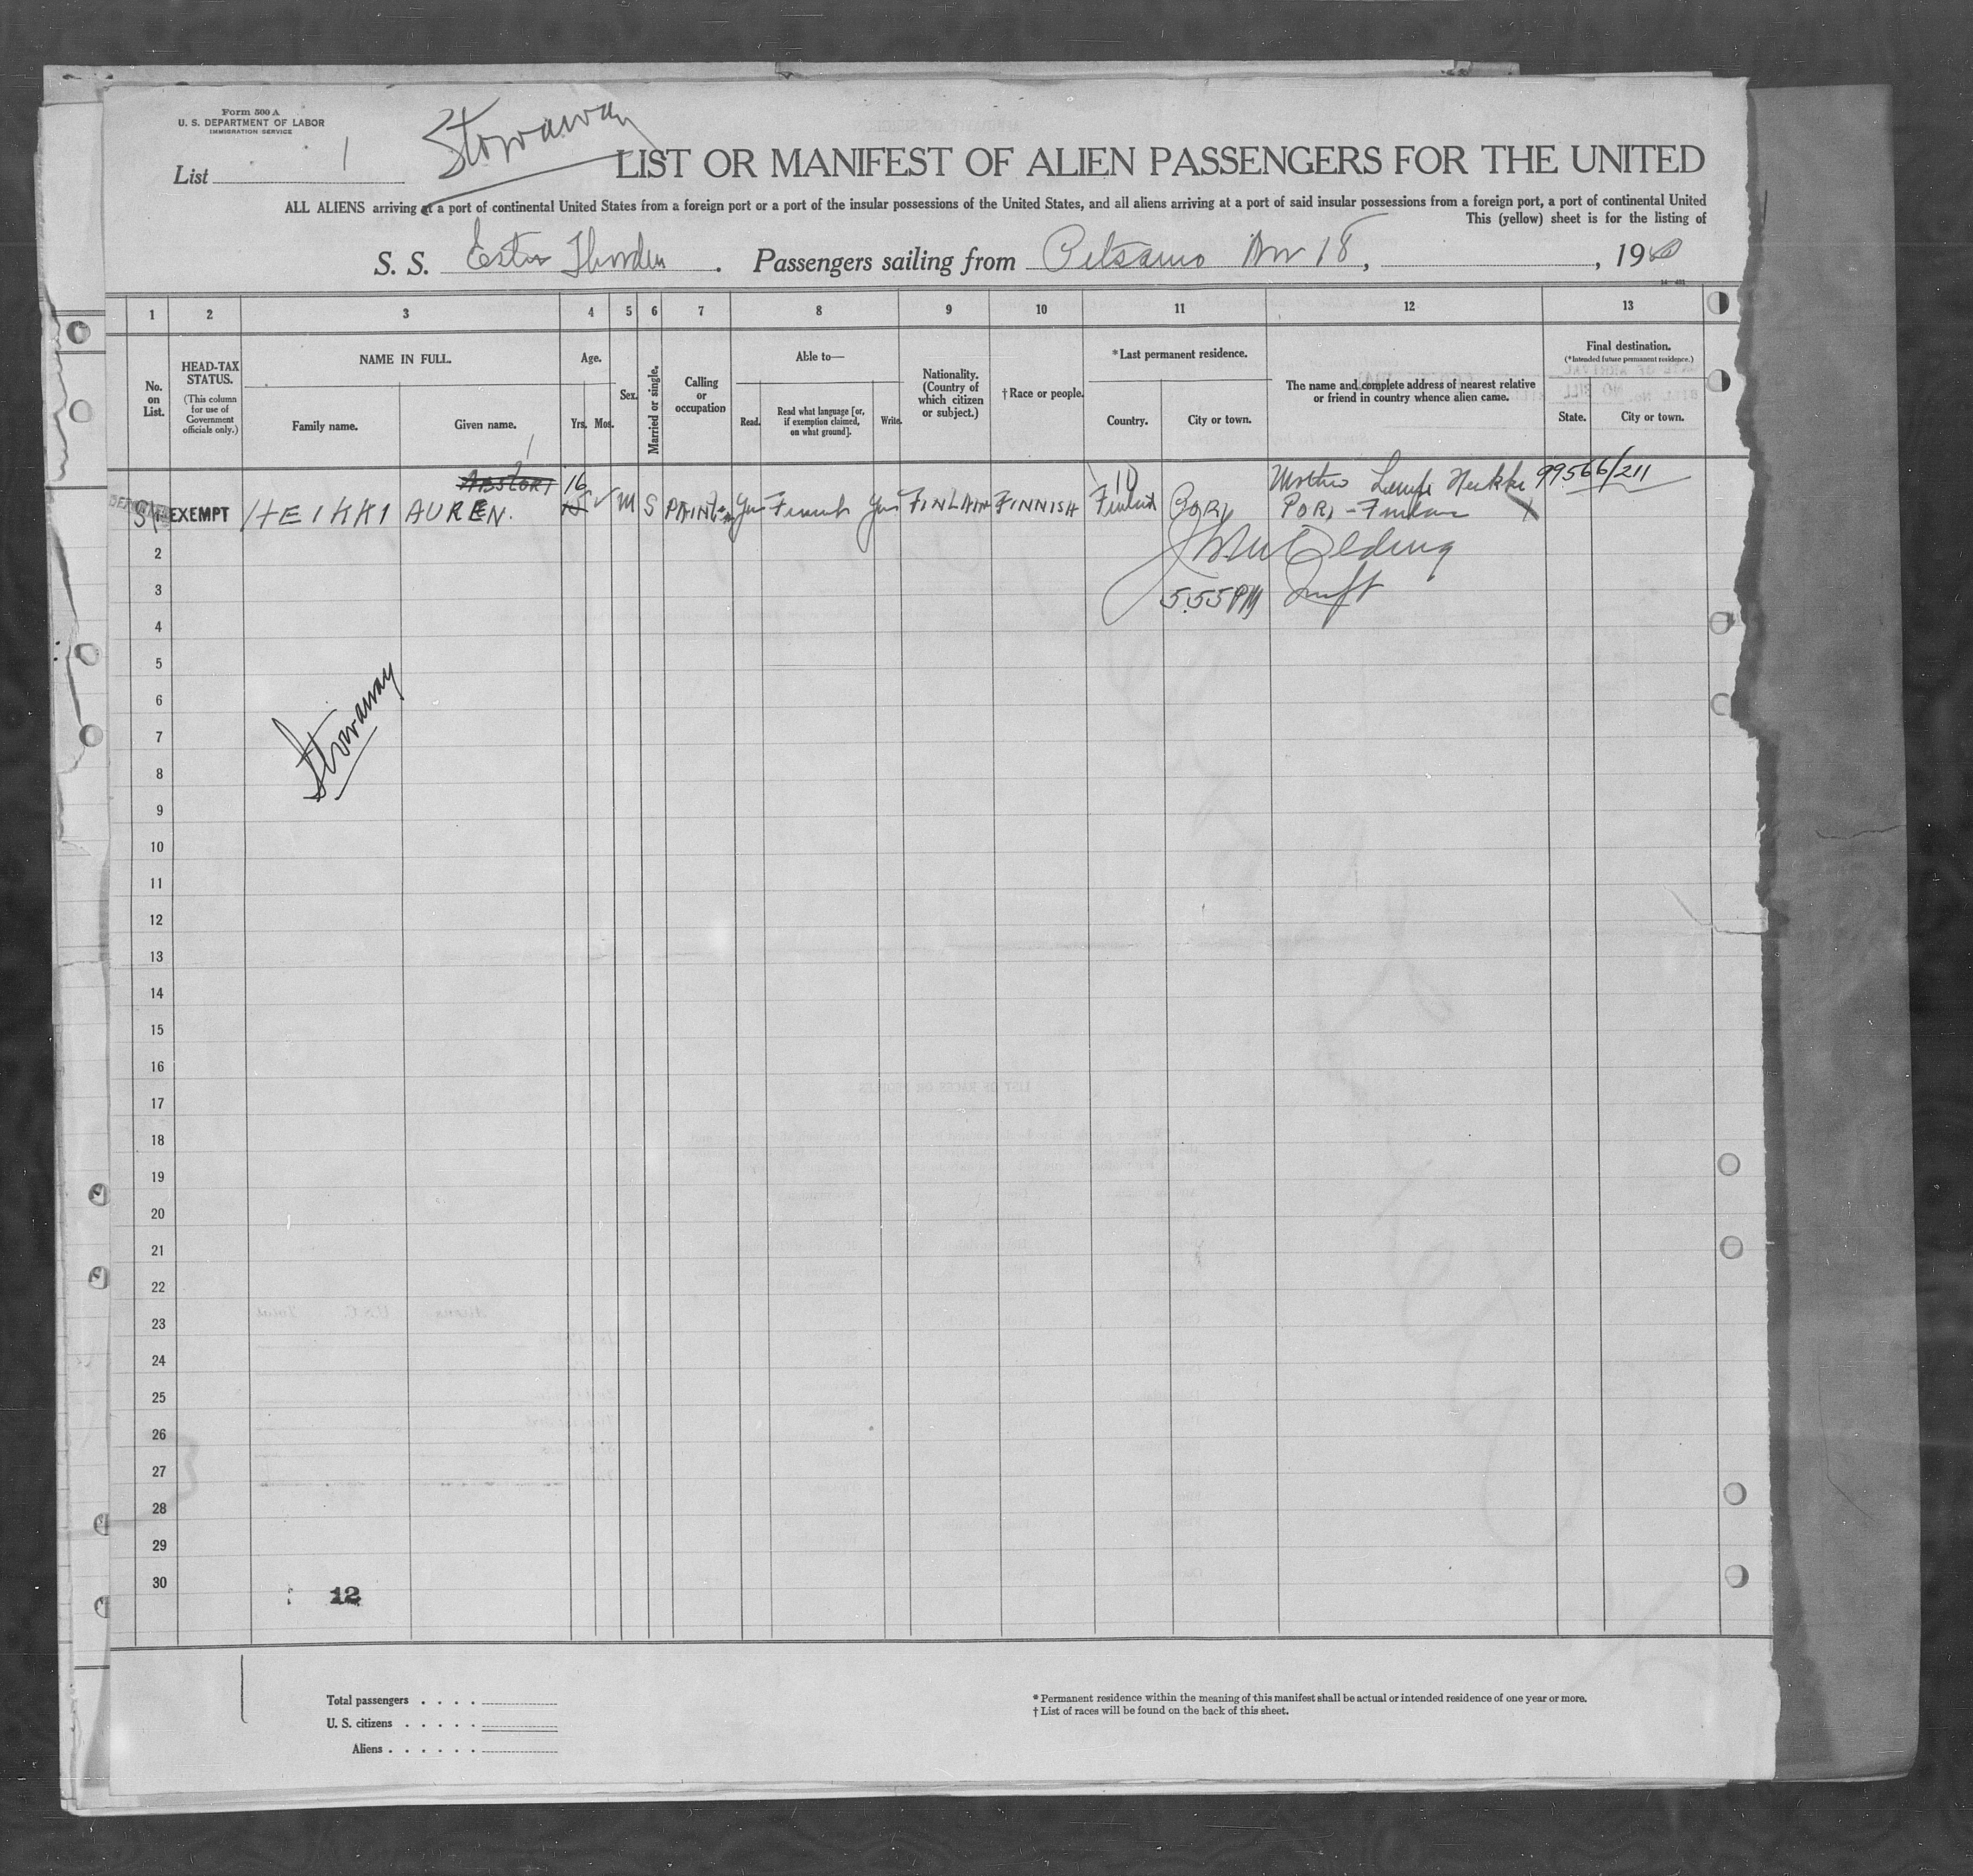 Form 500 A
U. S. DEPARTMENT OF LABOR
IMMIGRATION SERVICE
List 1
Stowaway
LIST OR MANIFEST OF ALIEN PASSENGERS FOR THE UNITED
ALL ALIENS arriving at a port of continental United States from a foreign port or a port of the insular possessions of the United States, and all aliens arriving at a port of said insular possessions from a foreign port, a port of continental United
This (yellow) sheet is for the listing of
S. S. Ester Thorden . Passengers sailing from Petsamo Nov 18, , 1940
1 2 3 4 5 6 7 8 9 10 11 12 13
No. on List.
HEAD-TAX STATUS.
(This column for use of Government officials only.)
NAME IN FULL.
Family name. Given name.
Age.
Yrs. Mos.
Sex.
Married or single.
Calling or occupation
Able to—
Read. Read what language [or, if exemption claimed, on what ground]. Write.
Nationality. (Country of which citizen or subject.)
†Race or people.
*Last permanent residence.
Country. City or town.
The name and complete address of nearest relative or friend in country whence alien came.
Final destination.
(*Intended future permanent residence.)
State. City or town.
16 10 Mother 99566/211
EXEMPT HEIKKI AUREN. M S Yes Finnish Yes FINLAND FINNISH Finland PORI PORI - Finland
2
3 5.55 PM
4
5
6
Stowaway
7
8
9
10
11
12
13
14
15
16
17
18
19
20
21
22
23
24
25
26
27
28
29
30
12
Total passengers . . . .
U. S. citizens . . . . .
Aliens . . . . . .
* Permanent residence within the meaning of this manifest shall be actual or intended residence of one year or more.
† List of races will be found on the back of this sheet.